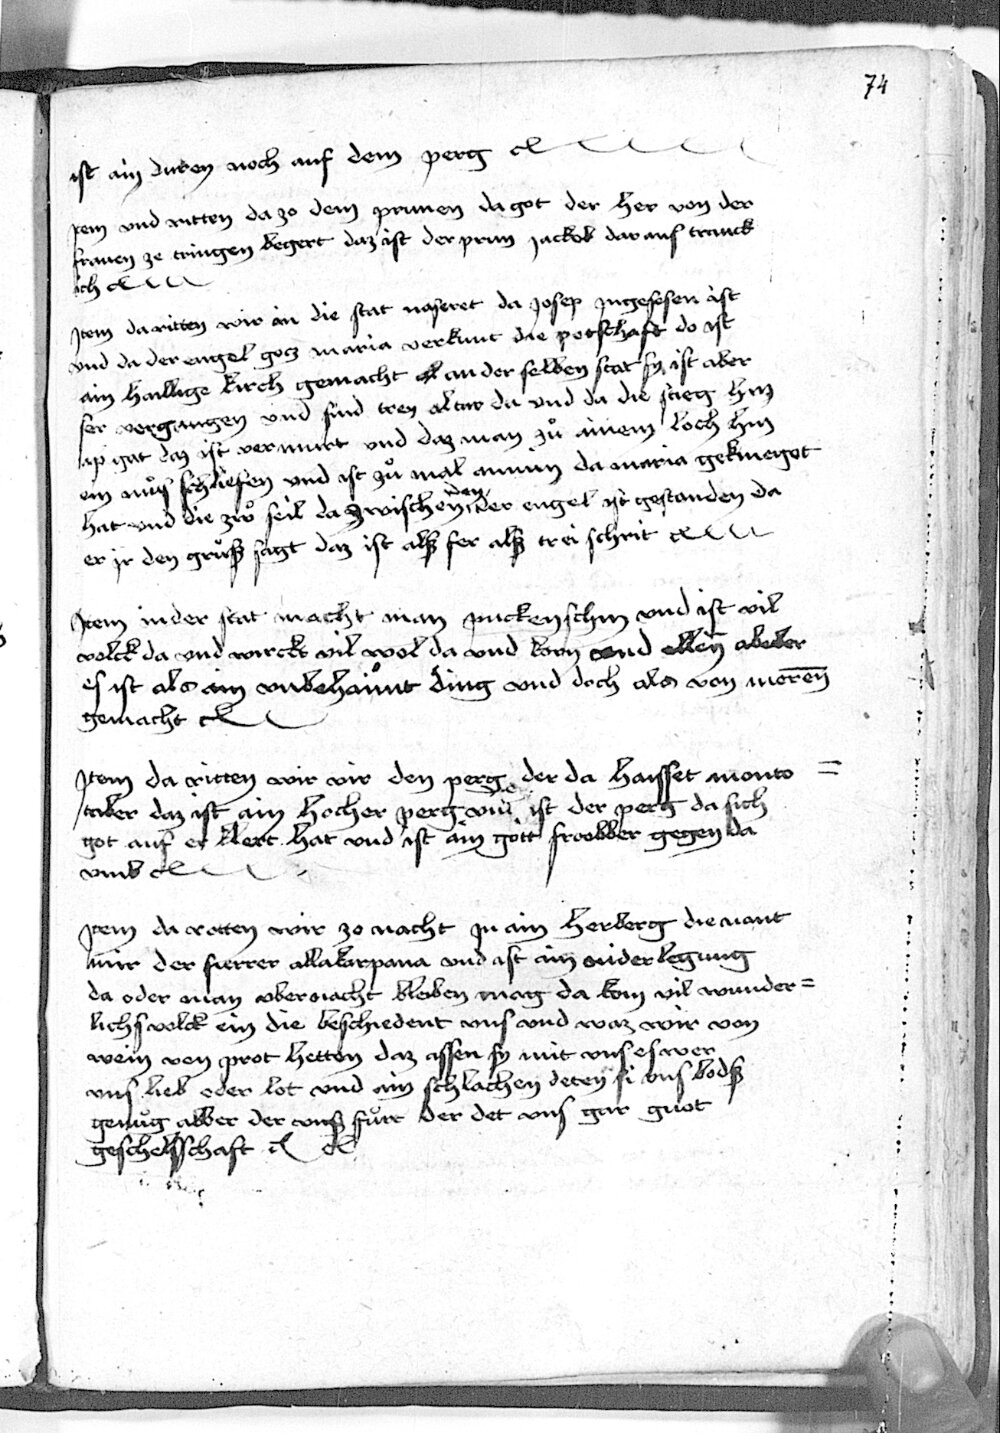 74
ist ain duren noch auf dem perg
Jtem vnd ritten da zo dem prunen da got der her von der
frauen ze tringen begert daz ist der prun jackob dar aus tranck
ich
Jtem da ritten wir in die stat naseret da Josep Jngesesen ist
vnd da der engel gocz maria verkunt die potschaft do ist
ain haillige kirch gemacht an der selben stat sy ist aber
ser vergangen vnd sind trey altar da vnd da die stieg hin
ap gat daz ist vermurt vnd daz man zů ainem loch hin
ein můs schliefen vnd ist zů mal da maria gekniegot
hat vnd die zwo seil da zwischen den der engel ist gestanden da
er jr den grůsß sagt daz ist alß fer alß trei schrit
Jtem in der stat macht man puckenschin vnd ist vil
volck da vnd wirckt vil wol da vnd korn vnd
es ist als ain ding vnd doch als von
gemacht
Jtem da ritten wir vir den perg der da haisset monto =
taber daz ist ain hocher perg vnd die ist der perg da sich
got auf er klert hat vnd ist ain gott gegen da
vmb
Jtem da ritten wir zo nacht Jn ain herberg die nant
mir der fierrer allakorpana vnd ist ain niderlegung
da oder man vbernacht bleiben mag da kom vil wunder =
lichs volck ein die beschiedent vns vnd waz wir von
wein von prot hetten daz assen sy mit vns es wer
vns lieb oder lot vnd ain schlachen deten si vns
genůg abber der vnsß fůrt der det vns gar guot
geschelschaft